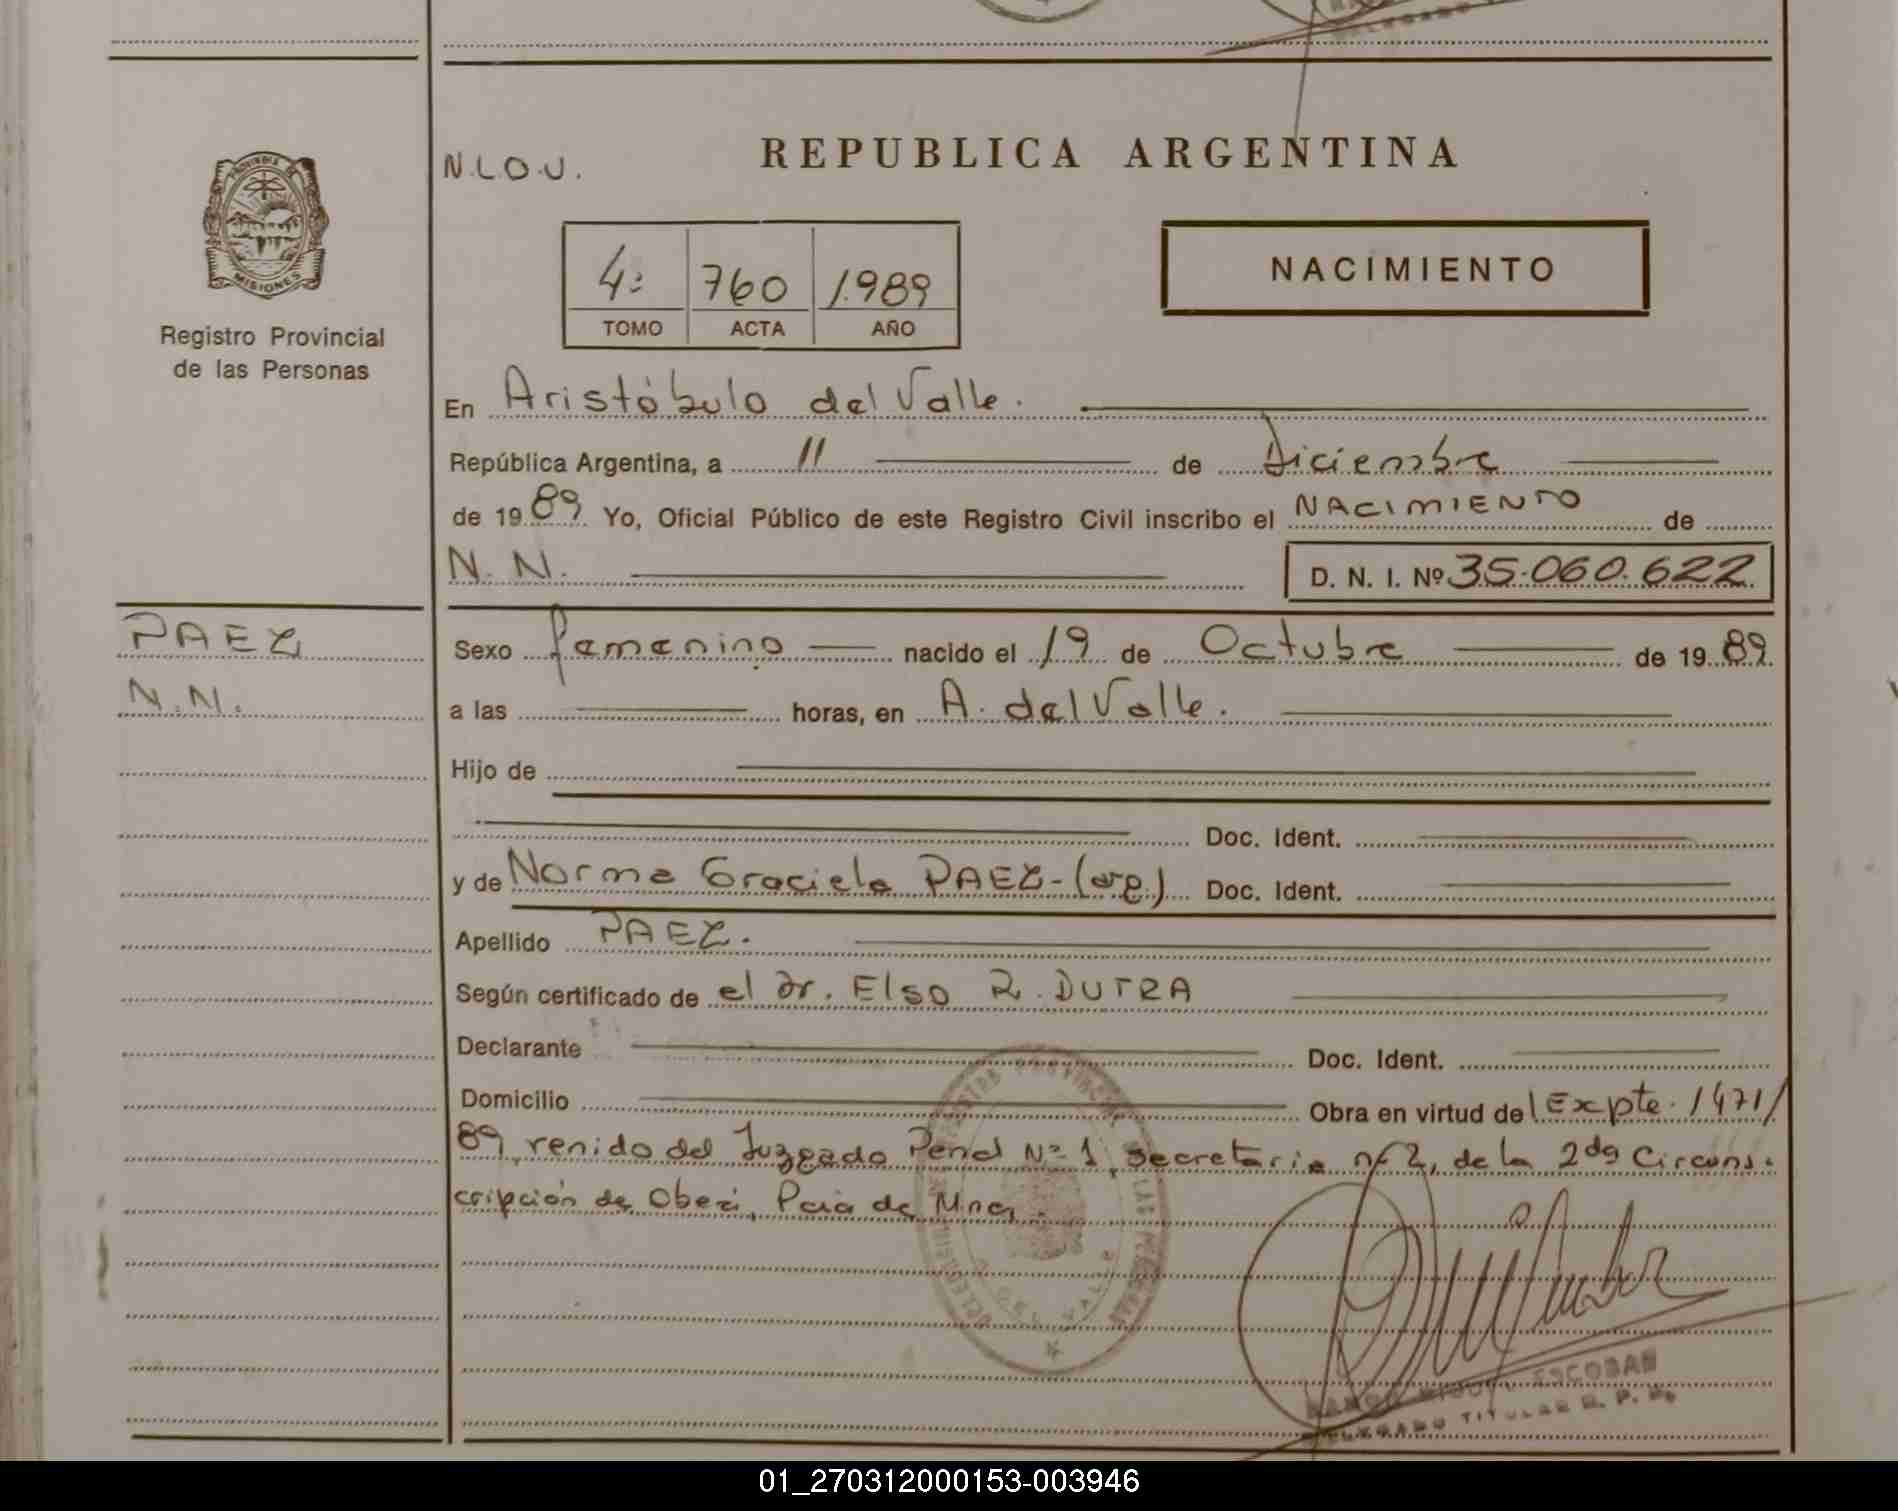 N.L.O.U.
REPUBLICA ARGENTINA
PROVINCIA DE
MISIONES
Registro Provincial
de las Personas
4º 760 1989
TOMO ACTA AÑO
NACIMIENTO
En Aristóbulo del Valle.
República Argentina, a 11 de Diciembre
de 1989 Yo, Oficial Público de este Registro Civil inscribo el NACIMIENTO de
N. N.
D. N. I. Nº 35.060.622
PAEZ
N.N.
Sexo femenino nacido el 19 de Octubre de 1989
a las horas, en A. del Valle.
Hijo de
Doc. Ident.
y de Norma Graciela PAEZ-(arg.) Doc. Ident.
Apellido PAEZ.
Según certificado de el Dr. Elso R. DUTRA
Declarante Doc. Ident.
Domicilio Obra en virtud del Expte. 1471/
89, renido del Juzgado Penal Nº 1, secretaria nº 2, de la 2da Circuns.
cripción de Oberá, Pcia de Mnes.
MIGUEL ESCOBAR
DELEGADO TITULAR R. P. P.
01_270312000153-003946